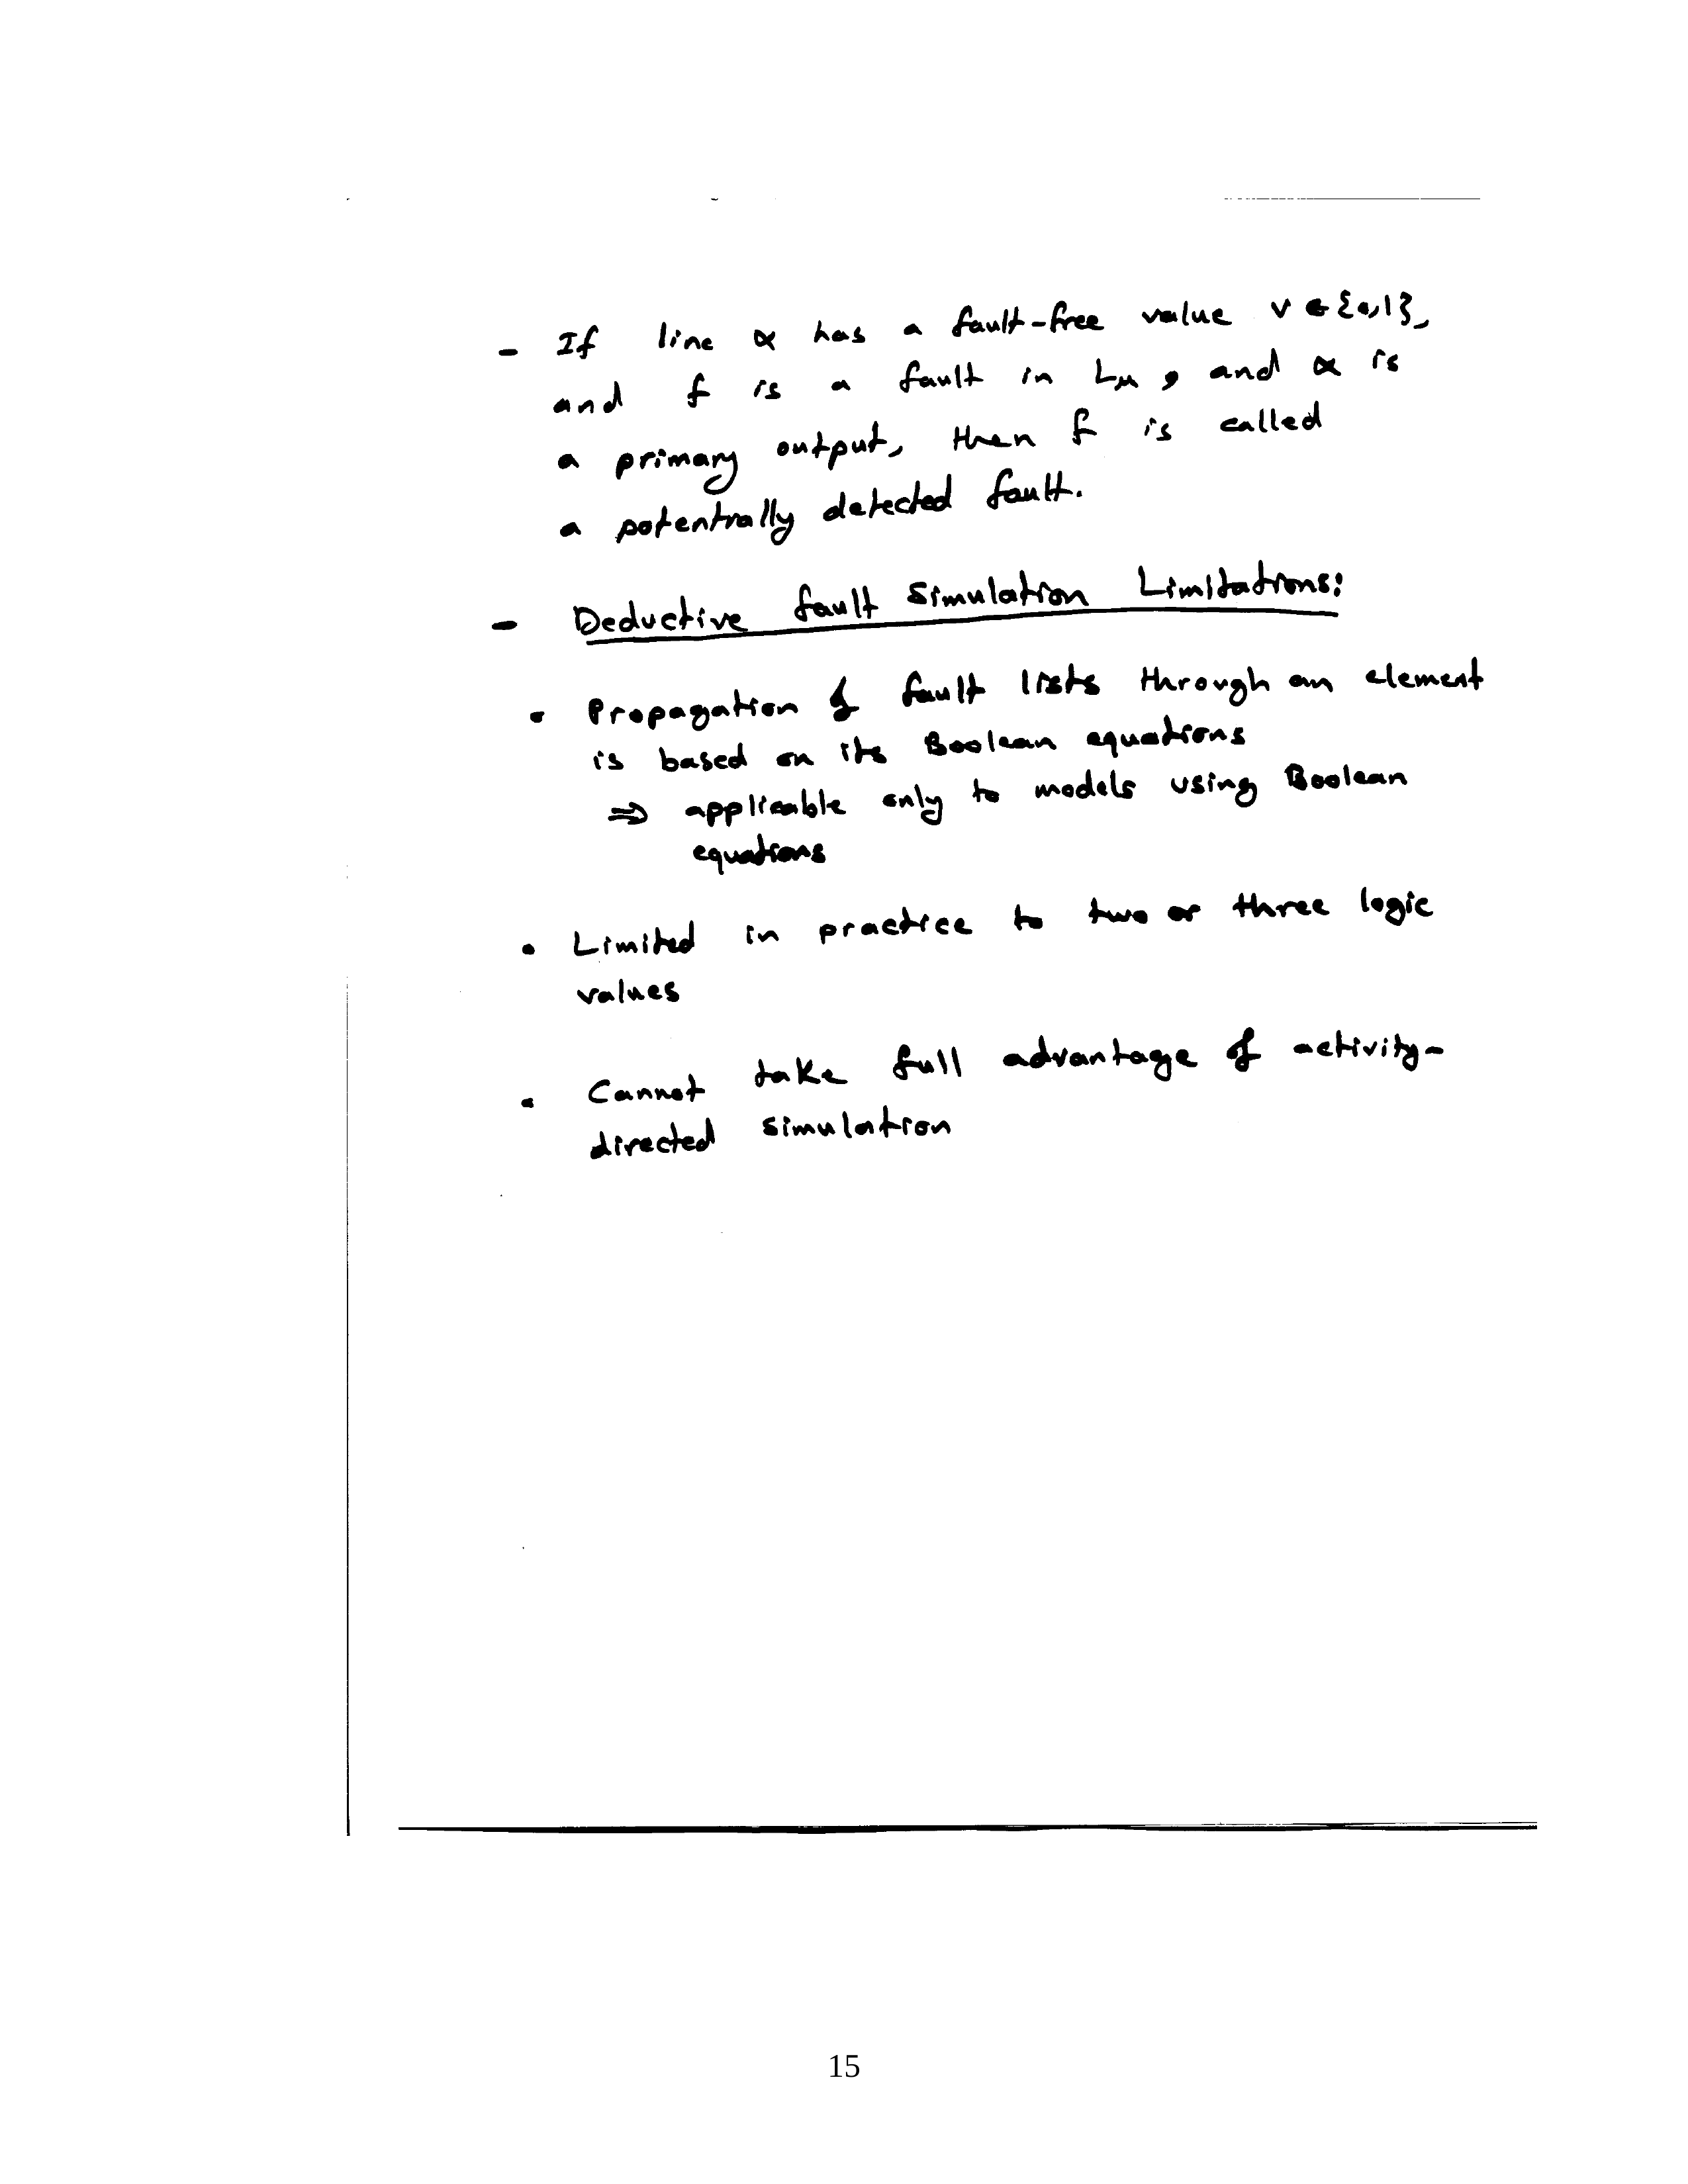 - If line α has a fault-free value v ∈ {0,1},
and f is a fault in Lμ, and α is
a primary output, then f is called
a potentially detected fault.
- Deductive fault simulation Limitations:
• Propagation of fault lists through an element
is based on its Boolean equations
⇒ applicable only to models using Boolean
equations
• Limited in practice to two or three logic
values
• Cannot take full advantage of activity-
directed simulation
15